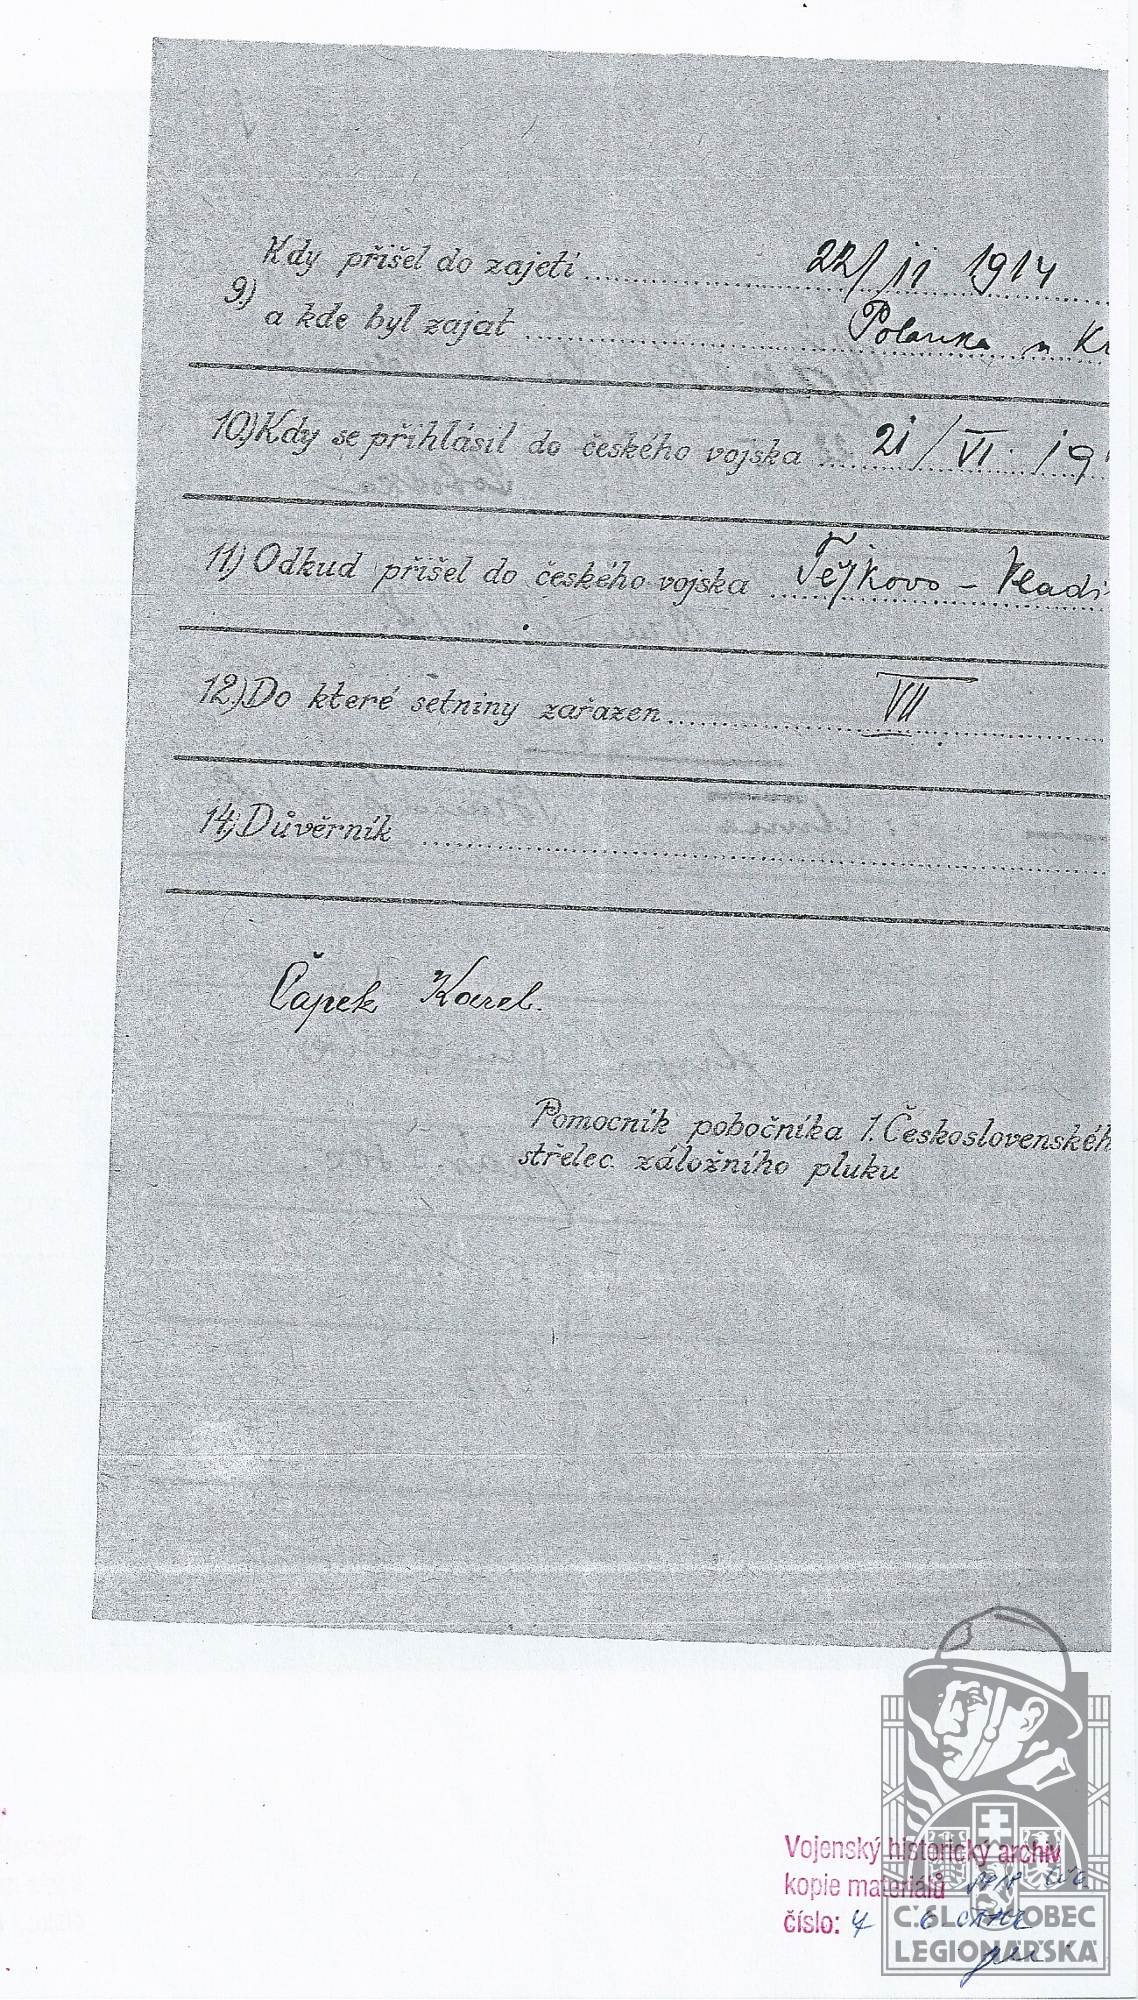 Kdy přišel do zajetí 22/11 1914
9.)
a kde byl zajat Polanka u Kr
10.) Kdy se přihlásil do českého vojska 21/VI. 19
11.) Odkud přišel do českého vojska Tejkovo – Vladi
12.) Do které setniny zařazen VII
14.) Důvěrník
Čapek Karel.
Pomocník pobočníka 1. Československéh
střelec. záložního pluku
Vojenský historický archiv
kopie materiálů
číslo: 4
ČSL. OBEC
LEGIONÁŘSKÁ